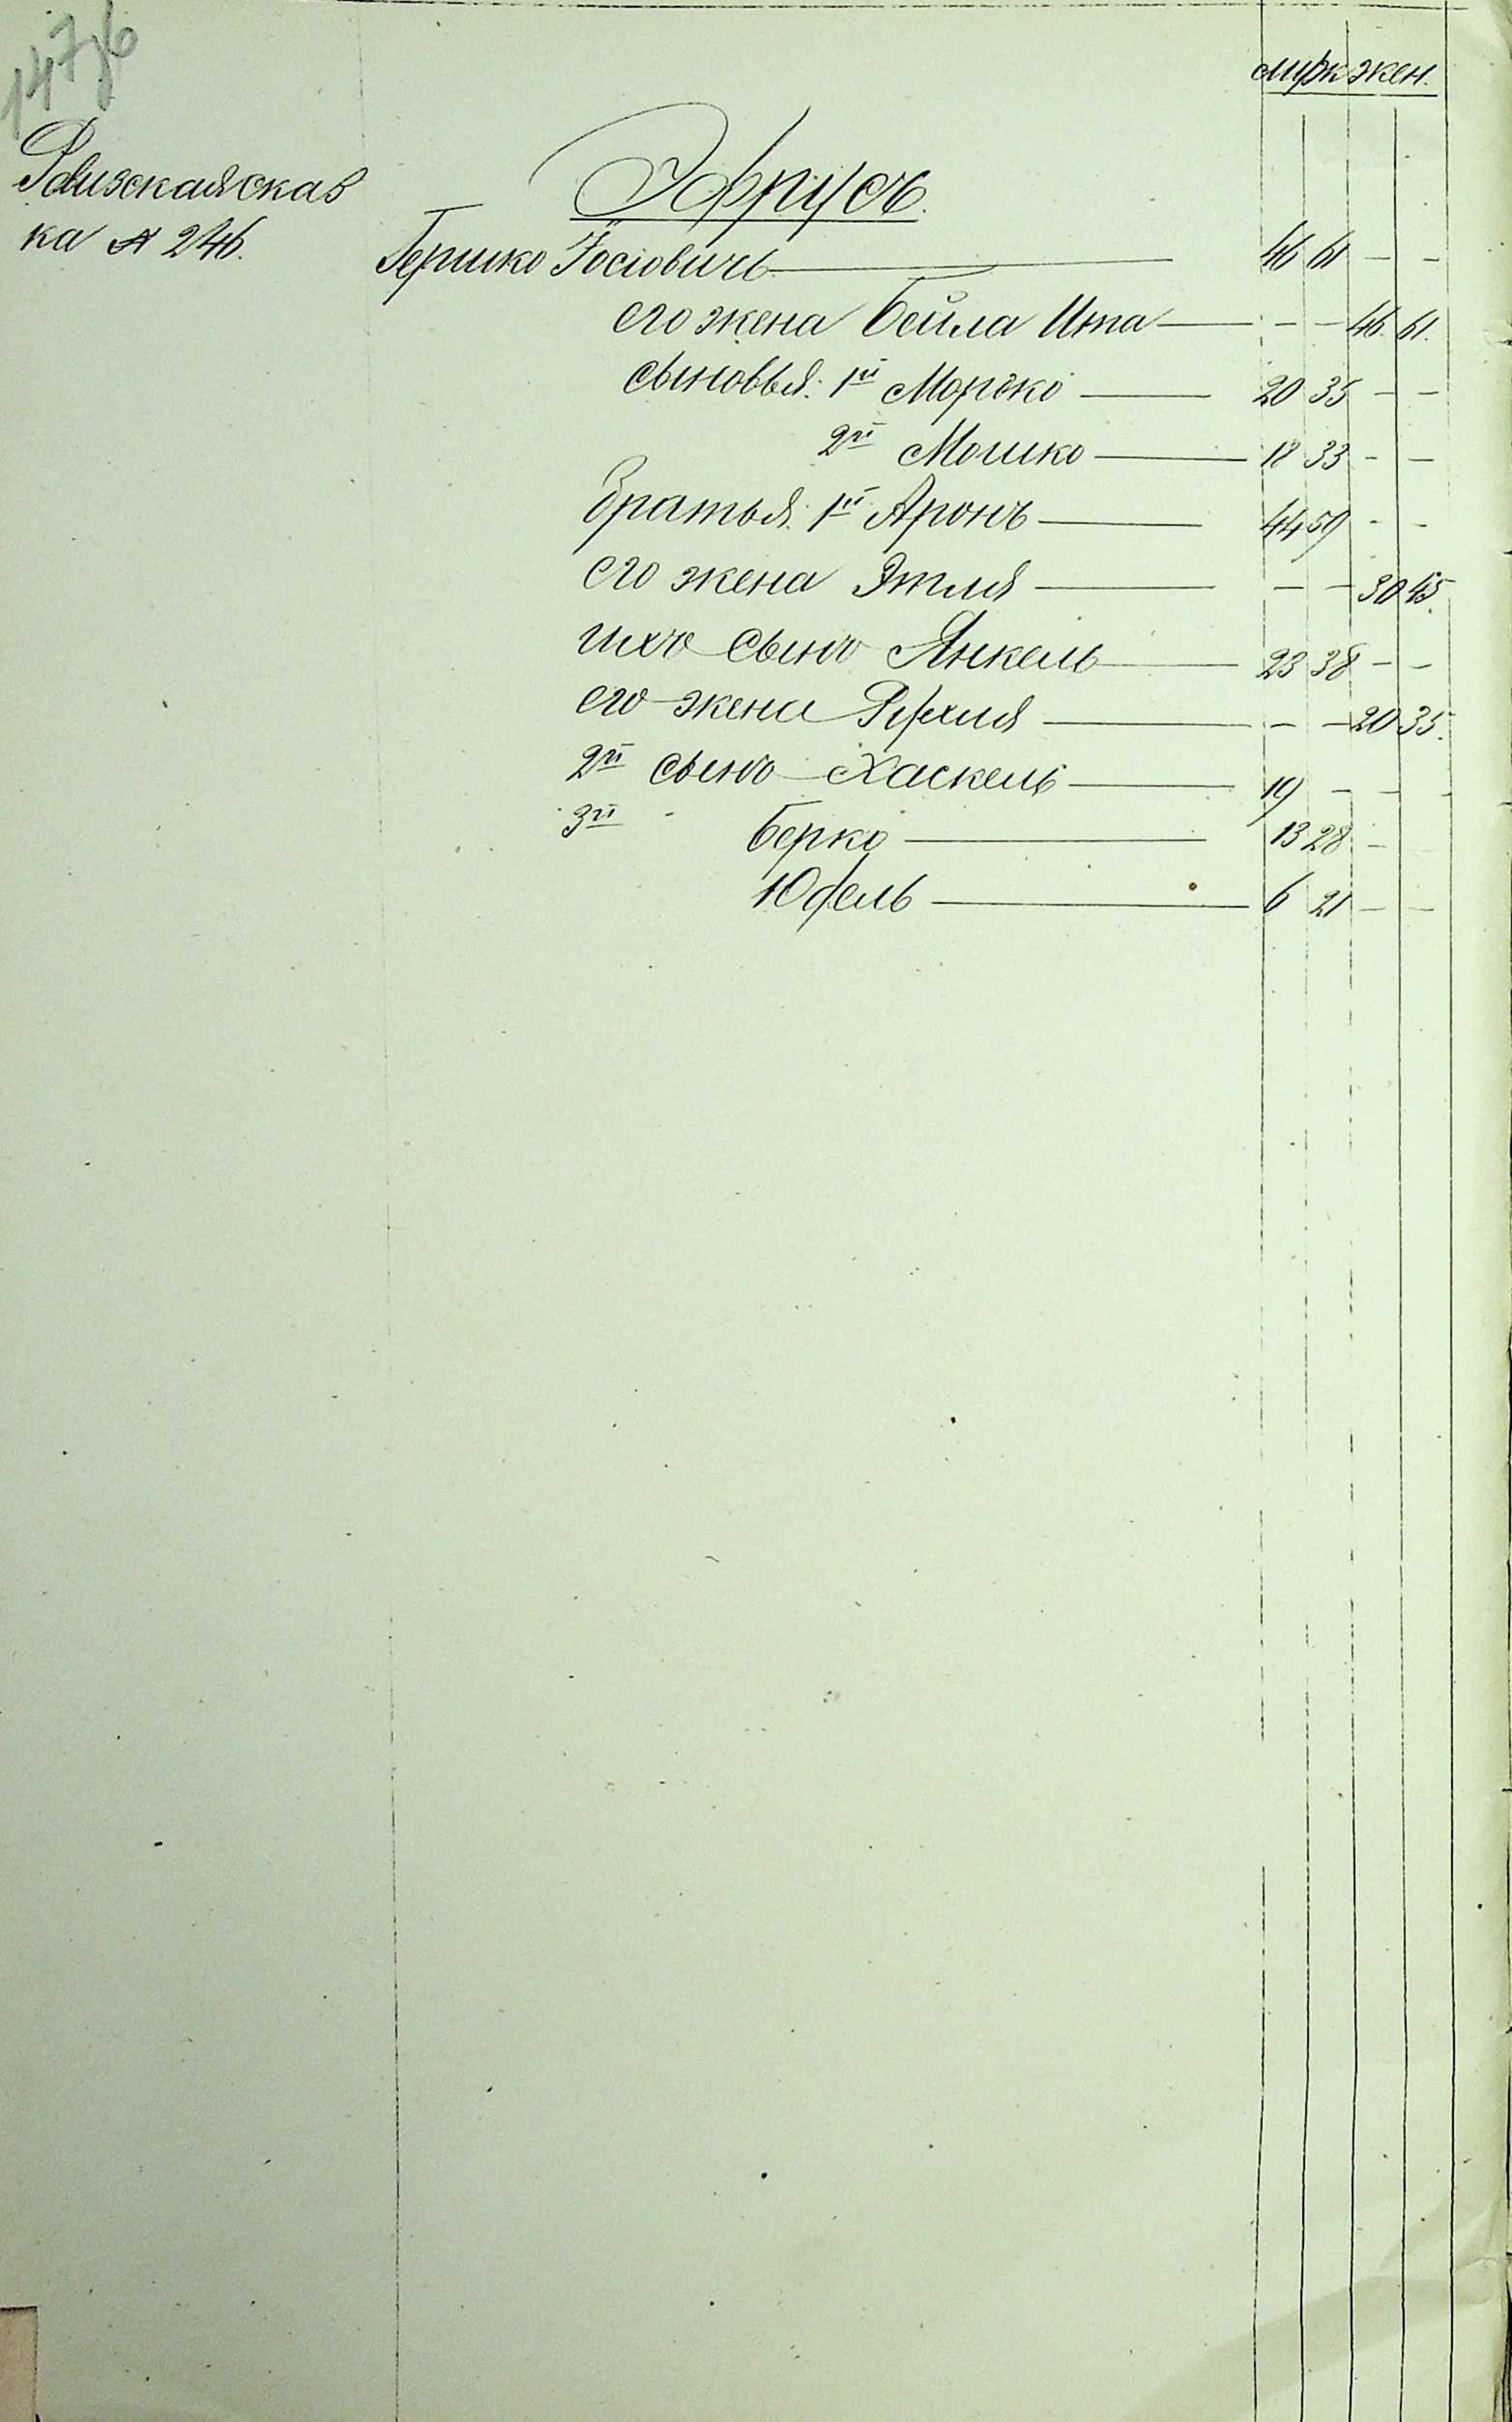 муж жен.
Эфрусъ.
Ревизская сказ
ка № 246.
Гершко Іосіовичъ 46 61 — —
его жена Бейла Ита — — 46. 61.
сыновья: 1й Мордко 20 35 — —
2й Мошко 18 33 — —
братья: 1й Аронъ 44 59 — —
его жена Этля — — 30 45.
ихъ сынъ Янкель 23 38 — —
его жена — — 20 35.
2й сынъ Хаскель 19 — — —
3й Берко 13 28 —
Юдель 6 21 — —